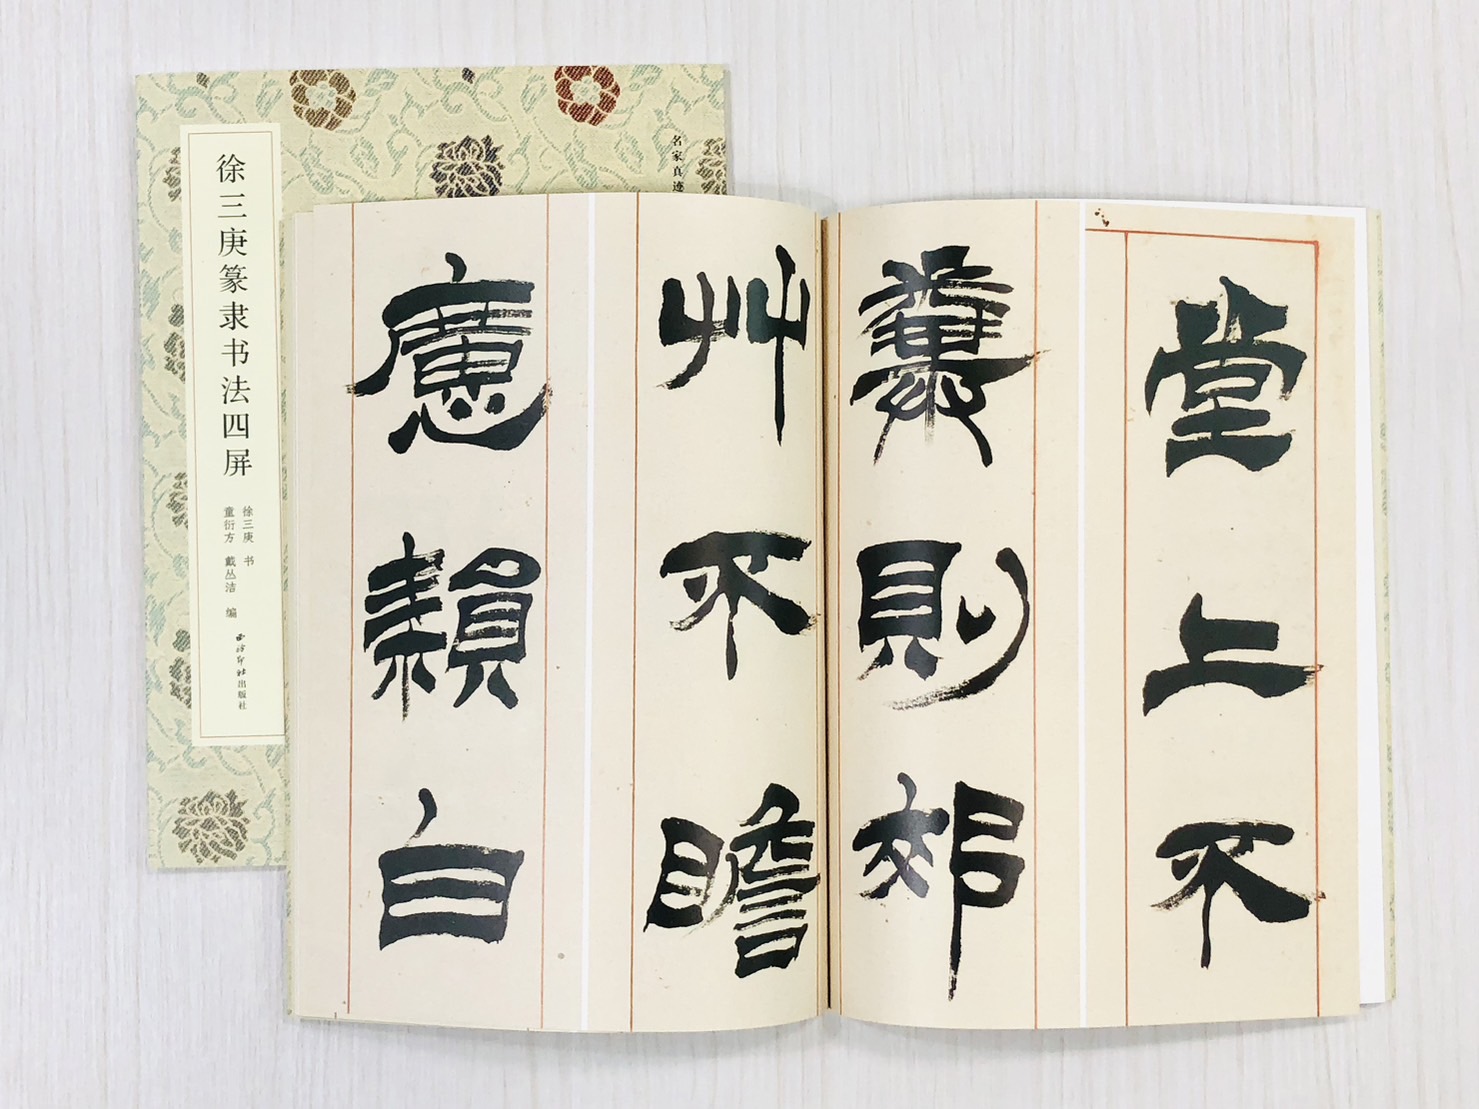 名家真迹
徐三庚篆隶书法四屏
徐三庚 书
童衍方 戴丛洁 编
西泠印社出版社
堂上不
糞則郊
艸不瞻
懬白